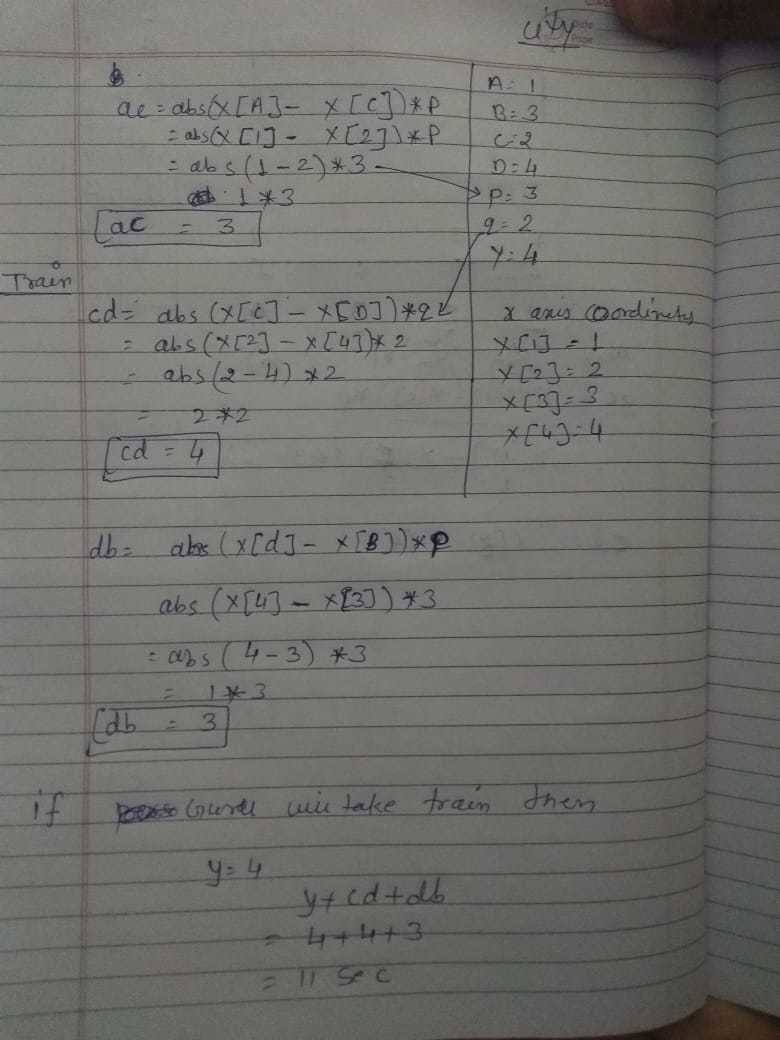 city
ac = abs(x[A] - x[C])*P
= abs(x[1] - x[2])*P
= abs(1-2)*3
1*3
ac = 3
A= 1
B= 3
C=2
D=4
p= 3
q= 2
Y= 4
Train
cd= abs(x[c] - x[D])*q
= abs(x[2] - x[4])*2
= abs(2-4)*2
= 2*2
cd = 4
x axis coordinates
x[1] = 1
x[2]= 2
x[3]=3
x[4]=4
db= abs(x[d] - x[B])*P
abs(x[4] - x[3])*3
= abs(4-3)*3
= 1*3
db = 3
if take train then
y= 4
y+cd+db
= 4+4+3
= 11 sec